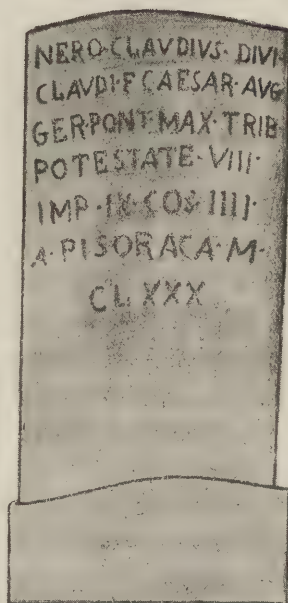 NERO·CLAVDIVS·DIVI·
CLAVDI·F·CAESAR·AVG
GER·PONT·MAX·TRIB·
POTESTATE·VIII·
IMP·IX·COS·IIII·
A·PISORACA·M·
CLXXX